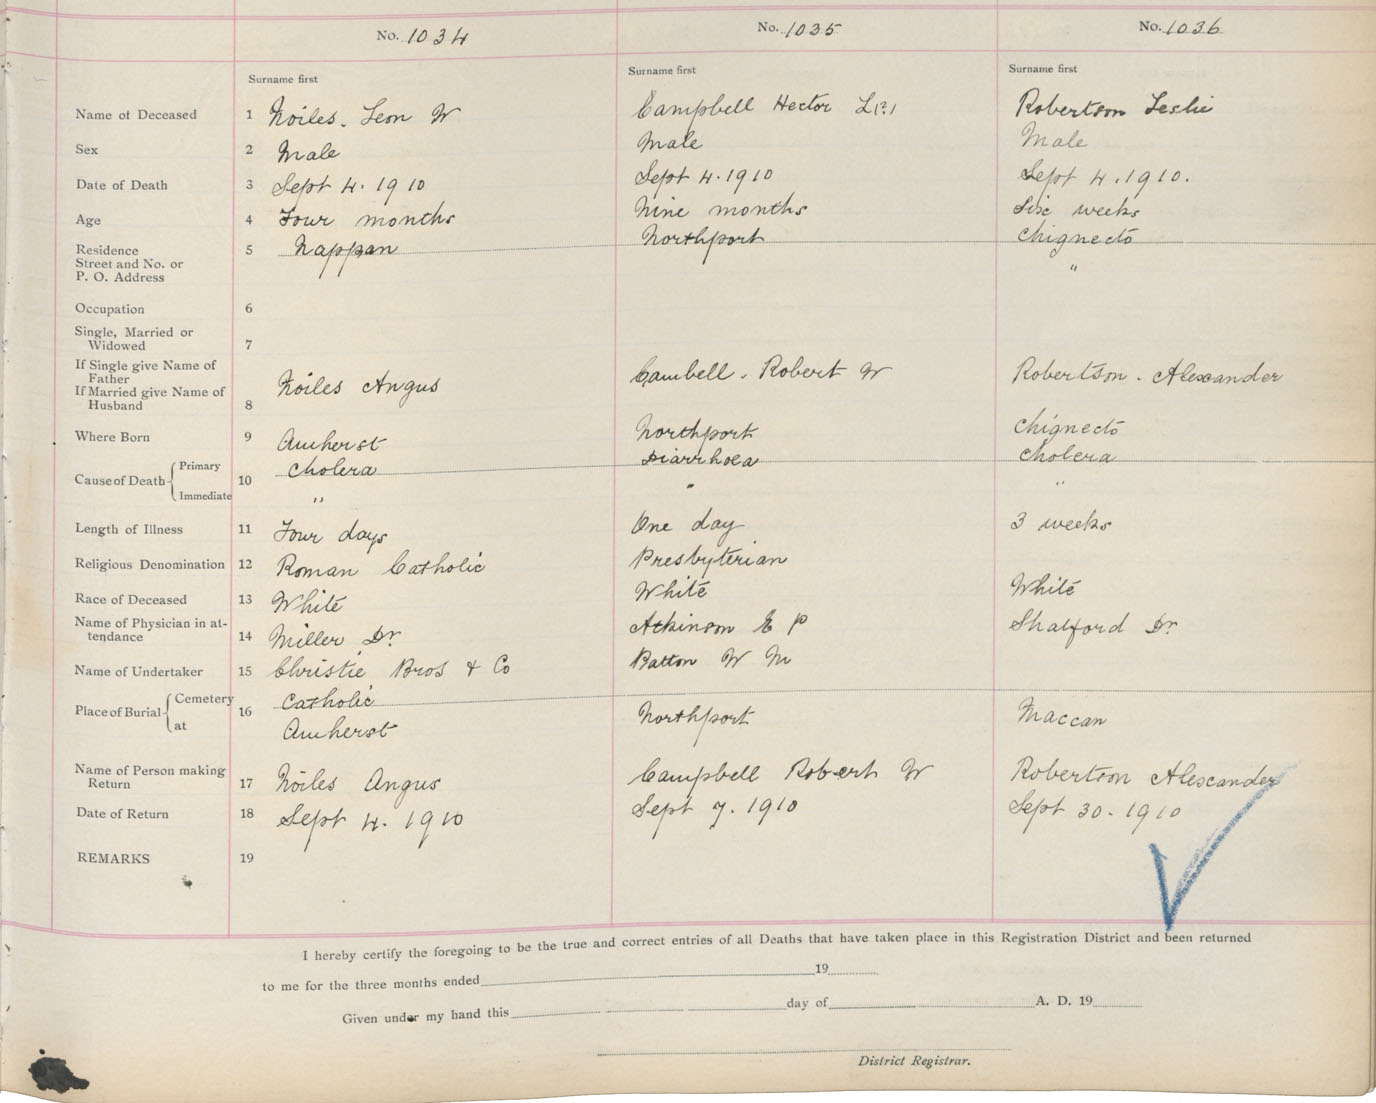 No. 1034 No. 1035 No. 1036
Surname first Surname first Surname first
Name of Deceased 1 Noiles. Leon W Campbell Hector Robertson Leslie
Sex 2 Male Male Male
Date of Death 3 Sept 4. 1910 Sept 4. 1910 Sept 4. 1910.
Age 4 Four months Nine months Six weeks
Residence 5 Nappan Northport Chignecto
Street and No. or
P. O. Address "
Occupation 6
Single, Married or
Widowed 7
If Single give Name of
Father Noiles Angus Cambell. Robert W Robertson. Alexander
If Married give Name of
Husband 8
Where Born 9 Amherst Northport Chignecto
Cause of Death Primary 10 Cholera Diarrhoea Cholera
Immediate " " "
Length of Illness 11 Four days One day 3 weeks
Religious Denomination 12 Roman Catholic Presbyterian
Race of Deceased 13 White White White
Name of Physician in at-
tendance 14 Miller Dr. Atkinson E P Shatford Dr
Name of Undertaker 15 Christie Bros & Co Patton W M
Place of Burial Cemetery 16 Catholic
at Amherst Northport Maccan
Name of Person making
Return 17 Noiles Angus Campbell Robert W Robertson Alexander
Date of Return 18 Sept 4. 1910 Sept 7. 1910 Sept 30. 1910
REMARKS 19
I hereby certify the foregoing to be the true and correct entries of all Deaths that have taken place in this Registration District and been returned
to me for the three months ended 19
Given under my hand this day of A. D. 19
District Registrar.